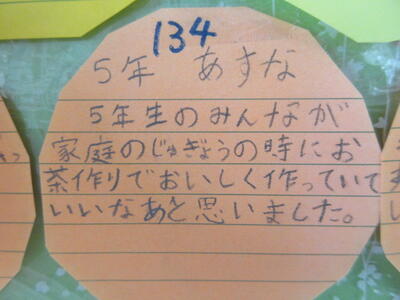 134
5年 あすな
5年生のみんなが
家庭のじゅぎょうの時にお
茶作りでおいしく作っていて
いいなあと思いました。